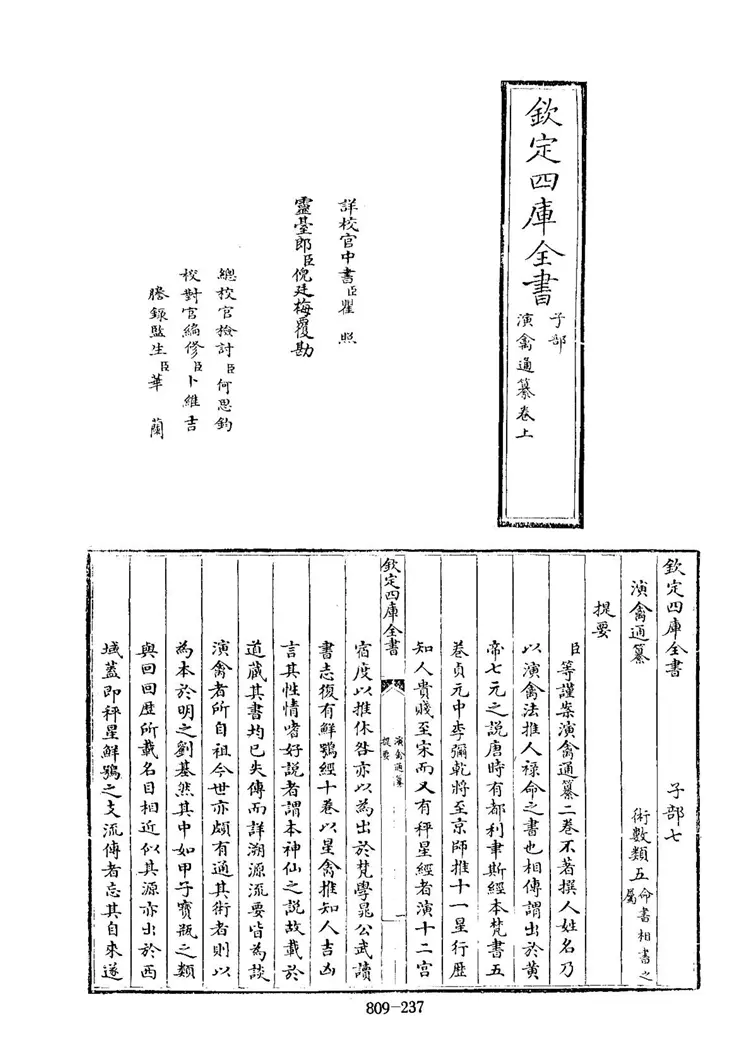 欽定四庫全書
子部
演禽通纂卷上
詳校官中書臣瞿照
靈臺郎臣倪廷梅覆勘
總校官檢討臣何思鈞
校對官編修臣卜維吉
謄錄監生臣華蘭
欽定四庫全書 子部七
演禽通纂 術數類五命書相書之屬
提要
臣等謹案演禽通纂二卷不著撰人姓名乃
以演禽法推人祿命之書也相傳謂出於黃
帝七元之説唐時有都利聿斯經本梵書五
卷貞元中李彌乾將至京師推十一星行歴
知人貴賤至宋而又有秤星經者演十二宫
欽定四庫全書
演禽通纂
提要
宿度以推休咎亦以為出於梵學晁公武讀
書志復有鮮鶚經十卷以星禽推知人吉凶
言其性情嗜好説者謂本神仙之説故載於
道藏其書均已失傳而詳溯源流要皆為談
演禽者所自祖今世亦頗有通其術者則以
為本於明之劉基然其中如甲子寶瓶之類
與回回歴所載名目相近似其源亦出於西
域蓋即秤星鮮鶚之支流傳者忘其自來遂
809-237